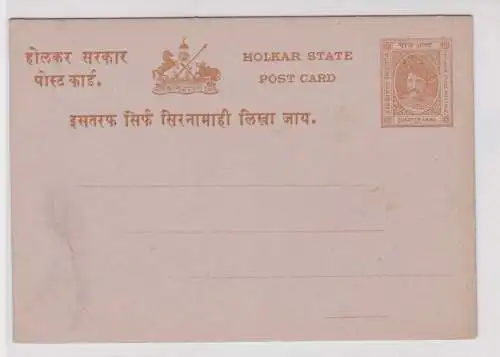 होलकर सरकार
पोस्ट कार्ड.
HOLKAR STATE
POST CARD
पाव आना
QUARTER ANNA
इसतरफ सिर्फ सिरनामाही लिखा जाय.